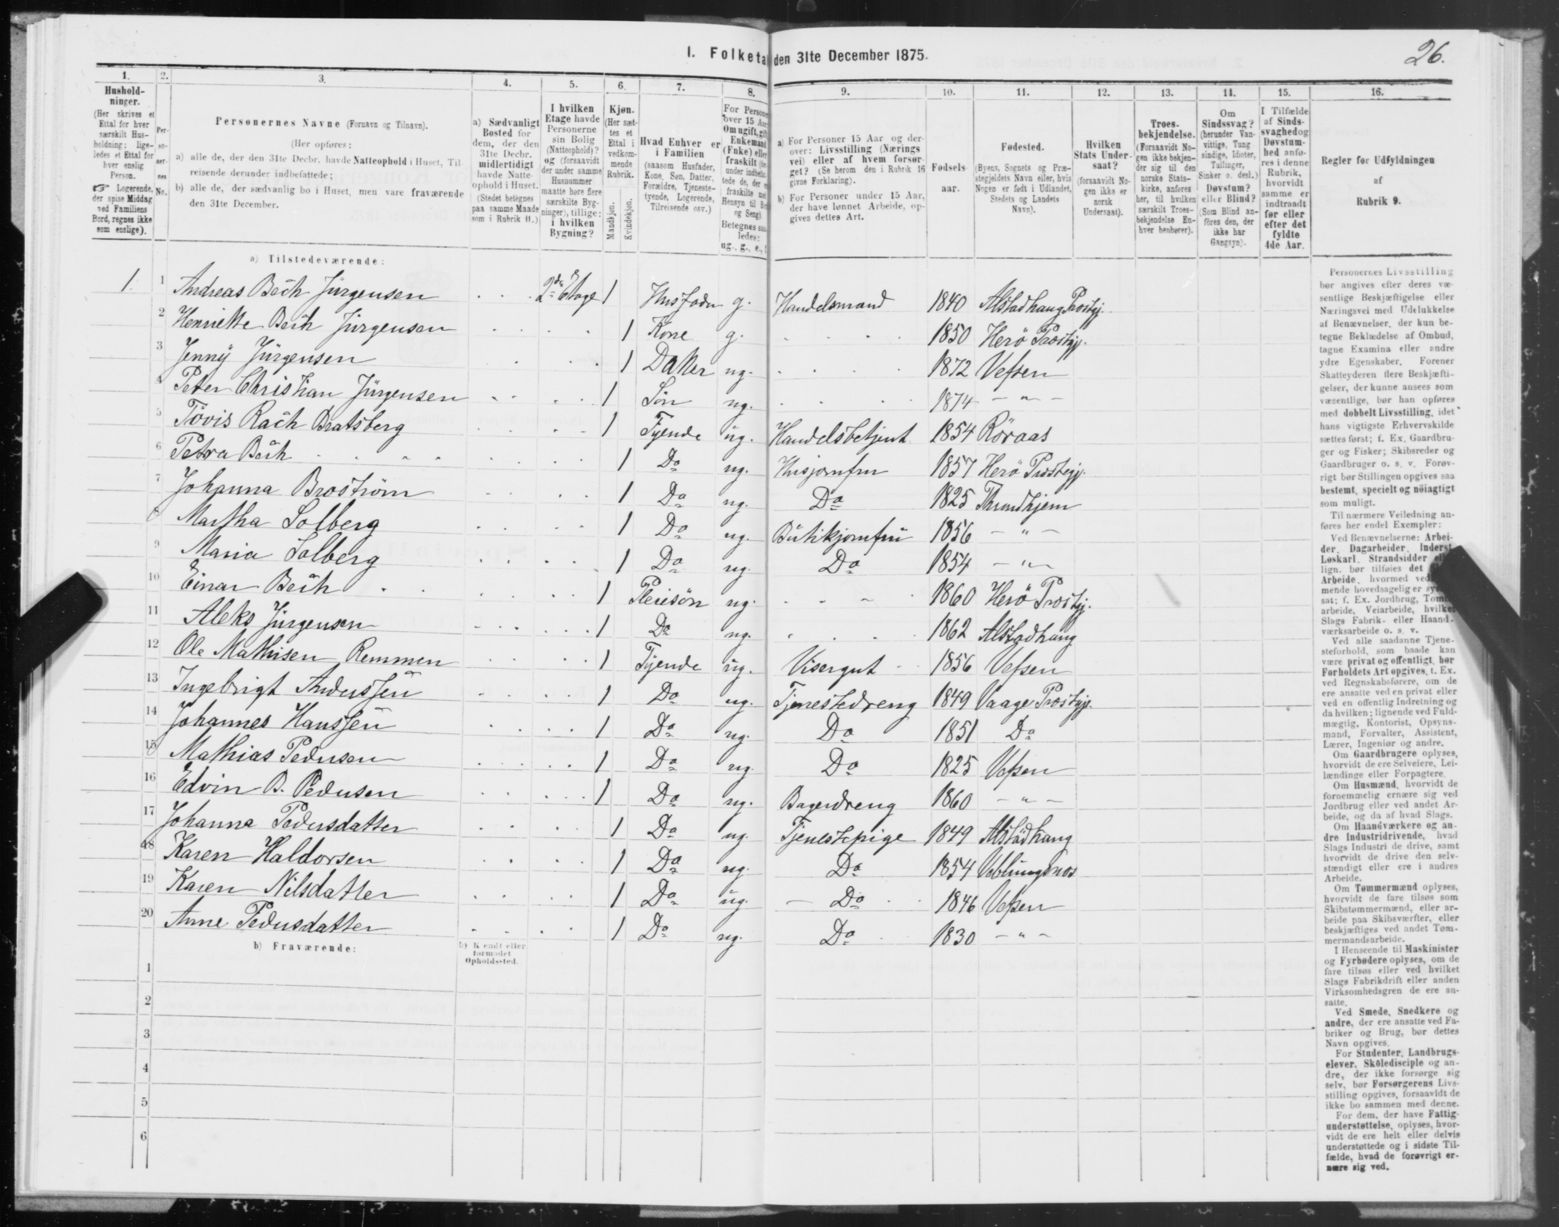 26.
I. Folketa den 31te December 1875.
1. 2. 3. 4. 5. 6. 7. 8. 9. 10. 11. 12. 13. 14. 15. 16.
Hushold-
ninger.
(Her skrives et
Ettal for hver
særskilt Hus-
holdning; lige-
ledes et Ettal for
hver enslig
Person.
☞ Logerende,
der spise Middag
ved Familiens
Bord, regnes ikke
som enslige).
Per-
so-
ner-
nes
No.
Personernes Navne (Fornavn og Tilnavn).
(Her opføres:
a) alle de, der den 31te Decbr. havde Natteophold i Huset, Til-
reisende derunder indbefattede;
b) alle de, der sædvanlig bo i Huset, men vare fraværende
den 31te December.
a) Sædvanligt
Bosted for
dem, der den
31te Decbr.
midlertidigt
havde Natte-
ophold i Huset.
(Stedet betegnes
paa samme Maade
som i Rubrik 11.)
I hvilken
Etage havde
Personerne
sin Bolig
(Natteophold)?
og (forsaavidt
der under samme
Husnummer
maatte høre flere
særskilte Byg-
ninger), tillige:
i hvilken
Bygning?
Kjøn.
(Her sæt-
tes et
Ettal i
vedkom-
mende
Rubrik.
Mandkjøn.
Kvindekjøn.
Hvad Enhver er
i Familien
(saasom Husfader,
Kone, Søn, Datter,
Forældre, Tjeneste-
tyende, Logerende,
Tilreisende osv.)
For Persone
over 15 Aar
Om ugift, gift
Enkemand
(Enke) eller
fraskilt
Betegnes saa-
ledes:
ug., g., e.,
a) For Personer 15 Aar og der-
over: Livsstilling (Nærings
vei) eller af hvem forsør
get? (Se herom den i Rubrik 16
givne Forklaring).
b) For Personer under 15 Aar,
der have lønnet Arbeide, op-
gives dettes Art.
Fødsels-
aar.
Fødested.
(Byens, Sognets og Præ-
stegjeldets Navn eller, hvis
Nogen er født i Udlandet,
Stedets og Landets
Navn).
Hvilken
Stats Under-
saat?
(forsaavidt No-
gen ikke er
norsk
Undersaat).
Troes-
bekjendelse.
(Forsaavidt No-
gen ikke bekjen-
der sig til den
norske Stats-
kirke, anføres
her, til hvilken
særskilt Troes-
bekjendelse En-
hver henhører).
Om
Sindssvag?
(herunder Van-
vittige, Tung
sindige, Idioter,
Tullinger,
Sinker o. desl.)
Døvstum?
eller Blind?
(Som Blind an-
føres den, der
ikke har
Gangsyn).
I Tilfælde
af Sinds-
svaghed og
Døvstum-
hed anfø-
res i denne
Rubrik,
hvorvidt
samme er
indtraadt
før eller
efter det
fyldte
4de Aar.
Regler for Udfyldningen
af
Rubrik 9.
a) Tilstedeværende:
1 1 Andreas Bech Jürgensen 2den Etage 1 Husfader g. Handelsmand 1840 Alstadhaug Prestgj.
2 Henriette Bech Jürgensen 1 Kone g. 1850 Herö Prestgj.
3 Jenny Jürgensen 1 Datter ug. 1872 Vefsen
4 Peter Christian Jürgensen 1 Søn ug. 1874 — " —
5 Rach Bratsberg 1 Tyende ug. Handelsbetjent 1854 Röraas
6 Petra Bech 1 Do ug. Husjomfru 1857 Herö Prestegj.
7 Johanna Broström 1 Do ug. Do 1825 Throndhjem
8 Martha Solberg 1 Do ug. Butikjomfru 1856 — " —
9 Maria Solberg 1 Do ug. Do 1854 — " —
10 Einar Bech 1 Pleiesön ug. 1860 Herö Prestgj.
11 Aleks Jürgensen 1 Do ug. 1862 Alstadhaug
12 Ole Mathisen Remmen 1 Tyende ug. Visergut 1856 Vefsen
13 Ingebrigt Anderssen 1 Do ug. Tjenestedreng 1849 Vaage Prestgj.
14 Johannes Hanssen 1 Do ug. Do 1851 Do
15 Mathias Pedersen 1 Do ug. Do 1825 Vefsen
16 Edvin B. Pedersen 1 Do ug. Bagerdreng 1860 — " —
17 Johanna Pedersdatter 1 Do ug. Tjenestepige 1849 Alstadhaug
18 Karen Haldorsen 1 Do ug. Do 1854 Veblungsnes
19 Karen Nilsdatter 1 Do ug. Do 1846 Vefsen
20 Anne Pedersdatter 1 Do ug. Do 1830 — " —
b) Fraværende:
b) Kendt eller
formodet
Opholdssted.
1
2
3
4
5
6
Personernes Livsstilling
bør angives efter deres væ-
sentlige Beskjæftigelse eller
Næringsvei med Udelukkelse
af Benævnelser, der kun be-
tegne Beklædelse af Ombud,
tagne Examina eller andre
ydre Egenskaber. Forener
Skatteyderen flere Beskjæfti-
gelser, der kunne ansees som
væsentlige, bør han opføres
med dobbelt Livsstilling, idet
hans vigtigste Erhvervskilde
sættes først; f. Ex. Gaardbru-
ger og Fisker; Skibsreder og
Gaardbruger o. s. v. Forøv-
rigt bør Stillingen opgives saa
bestemt, specielt og nøiagtigt
som muligt.
Til nærmere Veiledning an-
føres her endel Exempler:
Ved Benævnelserne: Arbei-
der, Dagarbeider, Inderst,
Løskarl, Strandsidder
lign. bør tilføies det
Arbeide, hvormed
mende hovedsagelig er
sat; f. Ex. Jordbrug,
arbeide, Veiarbeide, hvilket
Slags Fabrik- eller Haand-
værksarbeide o. s. v.
Ved alle saadanne Tjene-
steforhold, som baade kan
være privat og offentligt, bør
Forholdets Art opgives, f. Ex.
ved Regnskabsførere, om de
ere ansatte ved en privat eller
ved en offentlig Indretning og
da hvilken; lignende ved Fuld-
mægtig, Kontorist, Opsyns-
mand, Forvalter, Assistent,
Lærer, Ingeniør og andre.
Om Gaardbrugere oplyses,
hvorvidt de ere Selveiere, Lei-
lændinge eller Forpagtere.
Om Husmænd, hvorvidt de
fornemmelig ernære sig ved
Jordbrug eller ved andet Ar-
beide, og da af hvad Slags.
Om Haandværkere og an-
dre Industridrivende, hvad
Slags Industri de drive, samt
hvorvidt de drive den selv-
stændigt eller ere i andres
Arbeide.
Om Tømmermænd oplyses,
hvorvidt de fare tilsøs som
Skibstømmermænd, eller ar-
beide paa Skibsværfter, eller
beskjæftiges ved andet Tøm-
mermandsarbeide.
I Henseende til Maskinister
og Fyrbødere oplyses, om de
fare tilsøs eller ved hvilket
Slags Fabrikdrift eller anden
Virksomhedsgren de ere an-
satte.
Ved Smede, Snedkere og
andre, der ere ansatte ved Fa-
briker og Brug, bør dettes
Navn opgives.
For Studenter, Landbrugs-
elever, Skoledisciple og an-
dre, der ikke forsørge sig
selv, bør Forsørgerens Livs-
stilling opgives, forsaavidt de
ikke bo sammen med denne.
For dem, der have Fattig-
understøttelse, oplyses, hvor-
vidt de ere helt eller delvis
understøttede og i sidste Til-
fælde, hvad de forøvrigt er-
nære sig ved.